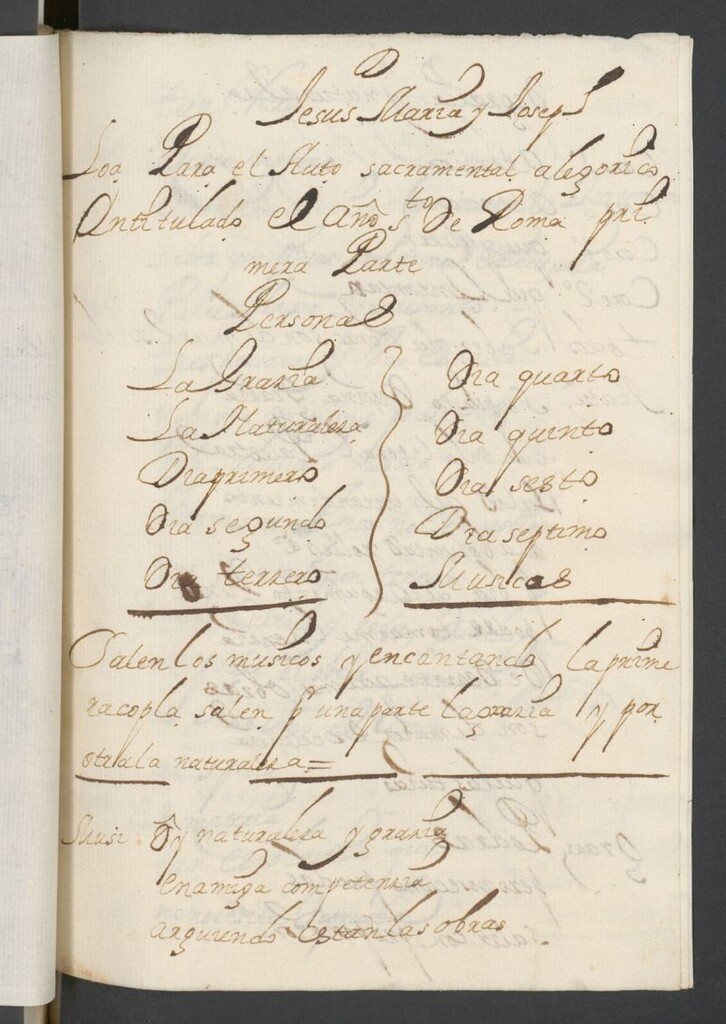 Jesus Maria y Joseph
Loa Para el Auto sacramental alegorico
Yntitulado el año sto De Roma pri
mera Parte
Personas
La Grazia
Dia quarto
La Naturaleza
Dia quinto
Dia primero
Dia sesto
Dia segundo
Dia septimo
Dia terzero
Musicos
Salen los musicos y encantando la prime
ra copla salen p una parte la grazia y por
otra la naturaleza =
Musi Oy naturaleza y grazia
en amiga competenzia
arguiendo estan las obras